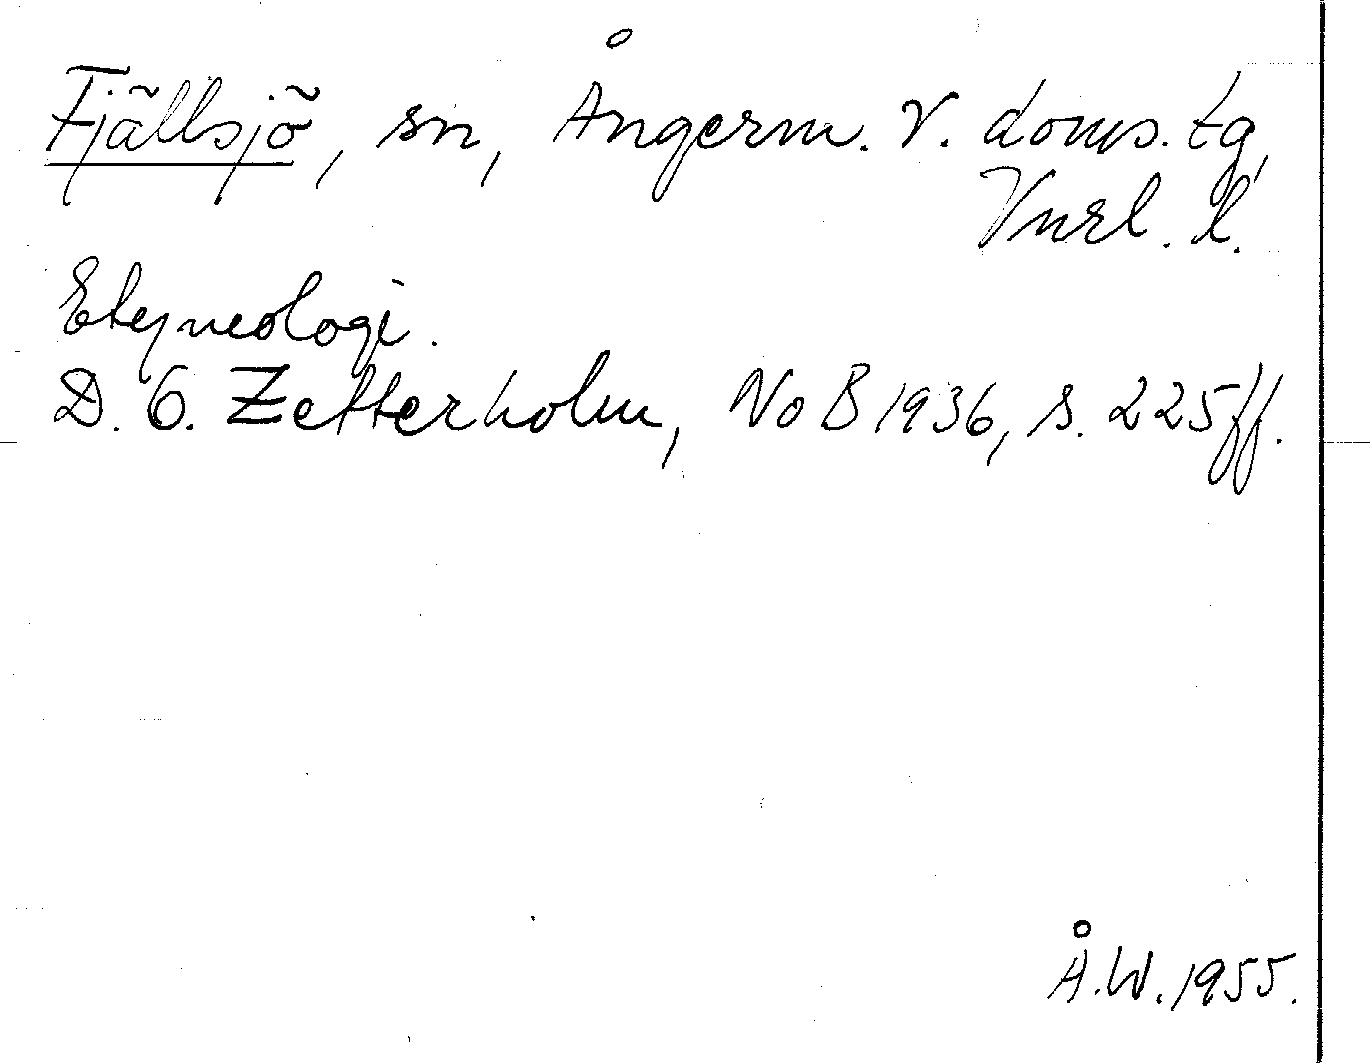 Fjällsjö, sn, Ångerm. V. doms. tg,
Vnrl. l.
Etymologi.
D. O. Zetterholm, NoB 1936, s. 225 ff.
Å. W. 1955.